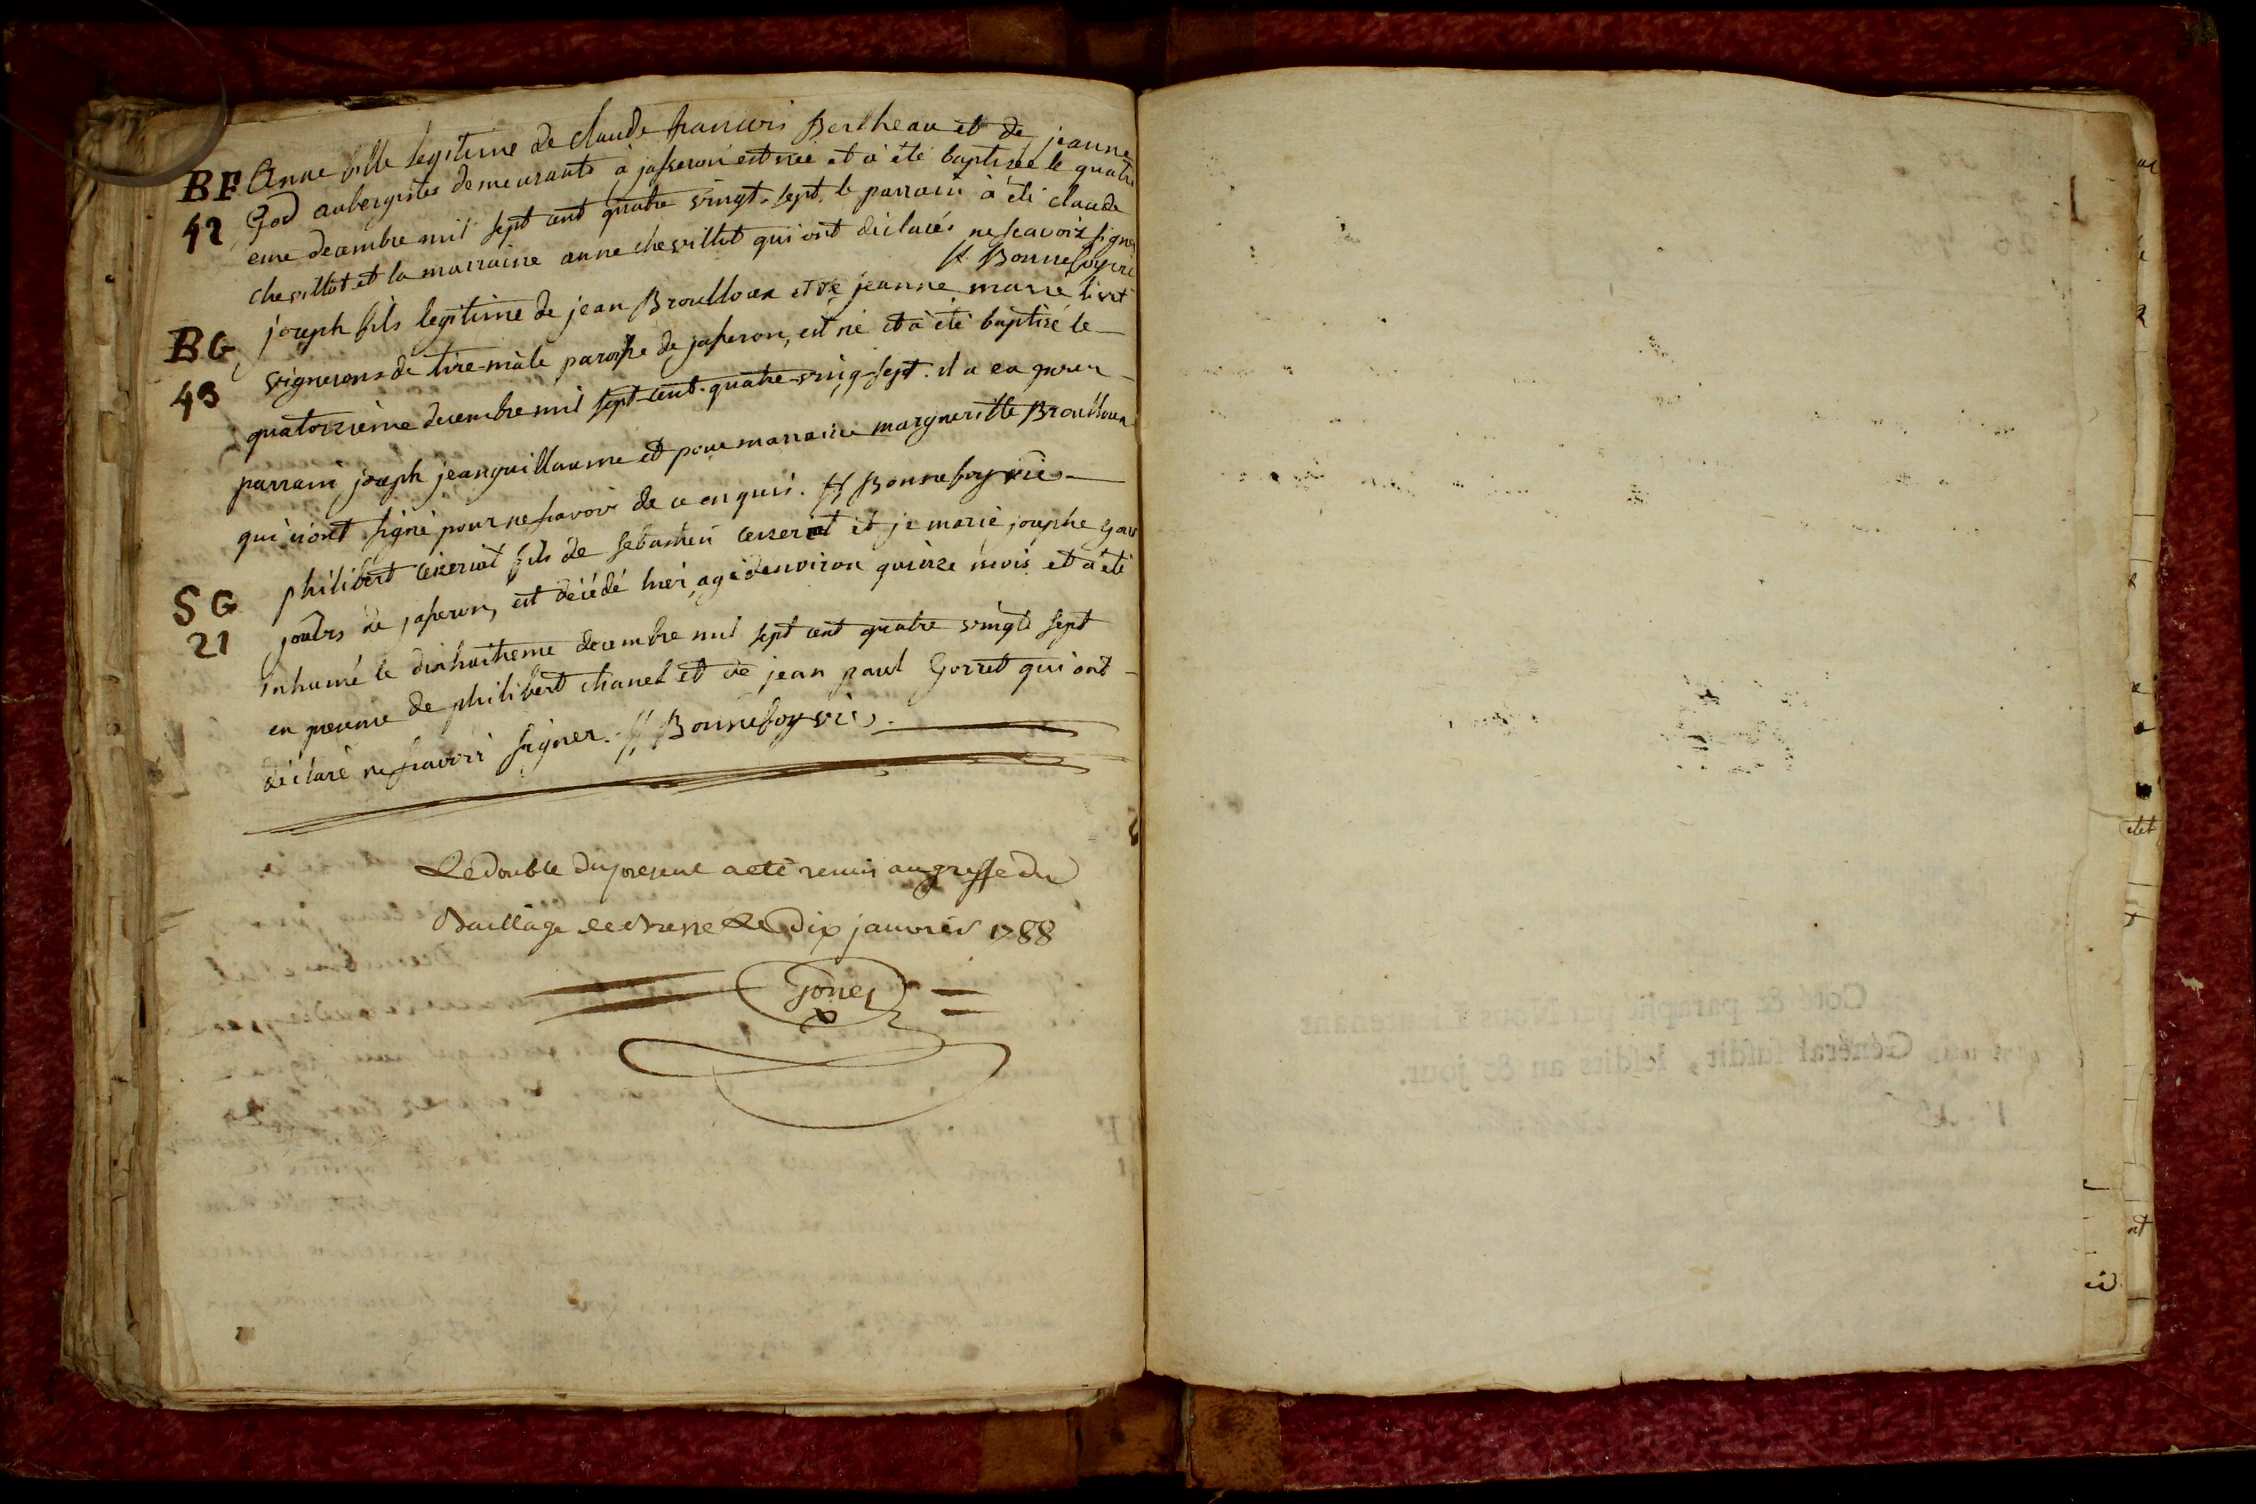 BF
42
Anne fille legitime de claude francois Bertheau et de jeanne
God aubergistes demeurants à jasseron est née et à été baptisée le quatri
eme decembre mil sept cent quatre vingt-sept. le parrain à été claude
chevillot et la marraine anne chevillot qui ont déclarés ne scavoir signer
f. Bonnefoy vic
BG
43
joseph fils legitime de jean Broulloux et de jeanne marie
vignerons de tire-mâle paroisse de jasseron, est né et à été baptisé le
quatorzième decembre mil sept-cent-quatre-ving-sept. il a eu pour
parrain joseph jeanguillaume et pour marraine marguerite Broulloux
qui n'ont signé pour ne scavoir de ce enquis. f. Bonnefoy vic
SG
21
philibert fils de sebastien et de marie josephe
de jasseron, est décédé hier, agé denviron quinze mois et a été
inhumé le dixhuitieme decembre mil sept cent quatre vingts sept
en presence de philibert chanel et de jean paul Gorret qui ont
déclaré ne scavoir signer. f. Bonnefoy vic.
Le double du present a eté remis au greffe du
Bailliage de Bresse le dix janvier 1788
Coté & paraphé par Nous Lieutenant
Général susdit, lesdits an & jour.